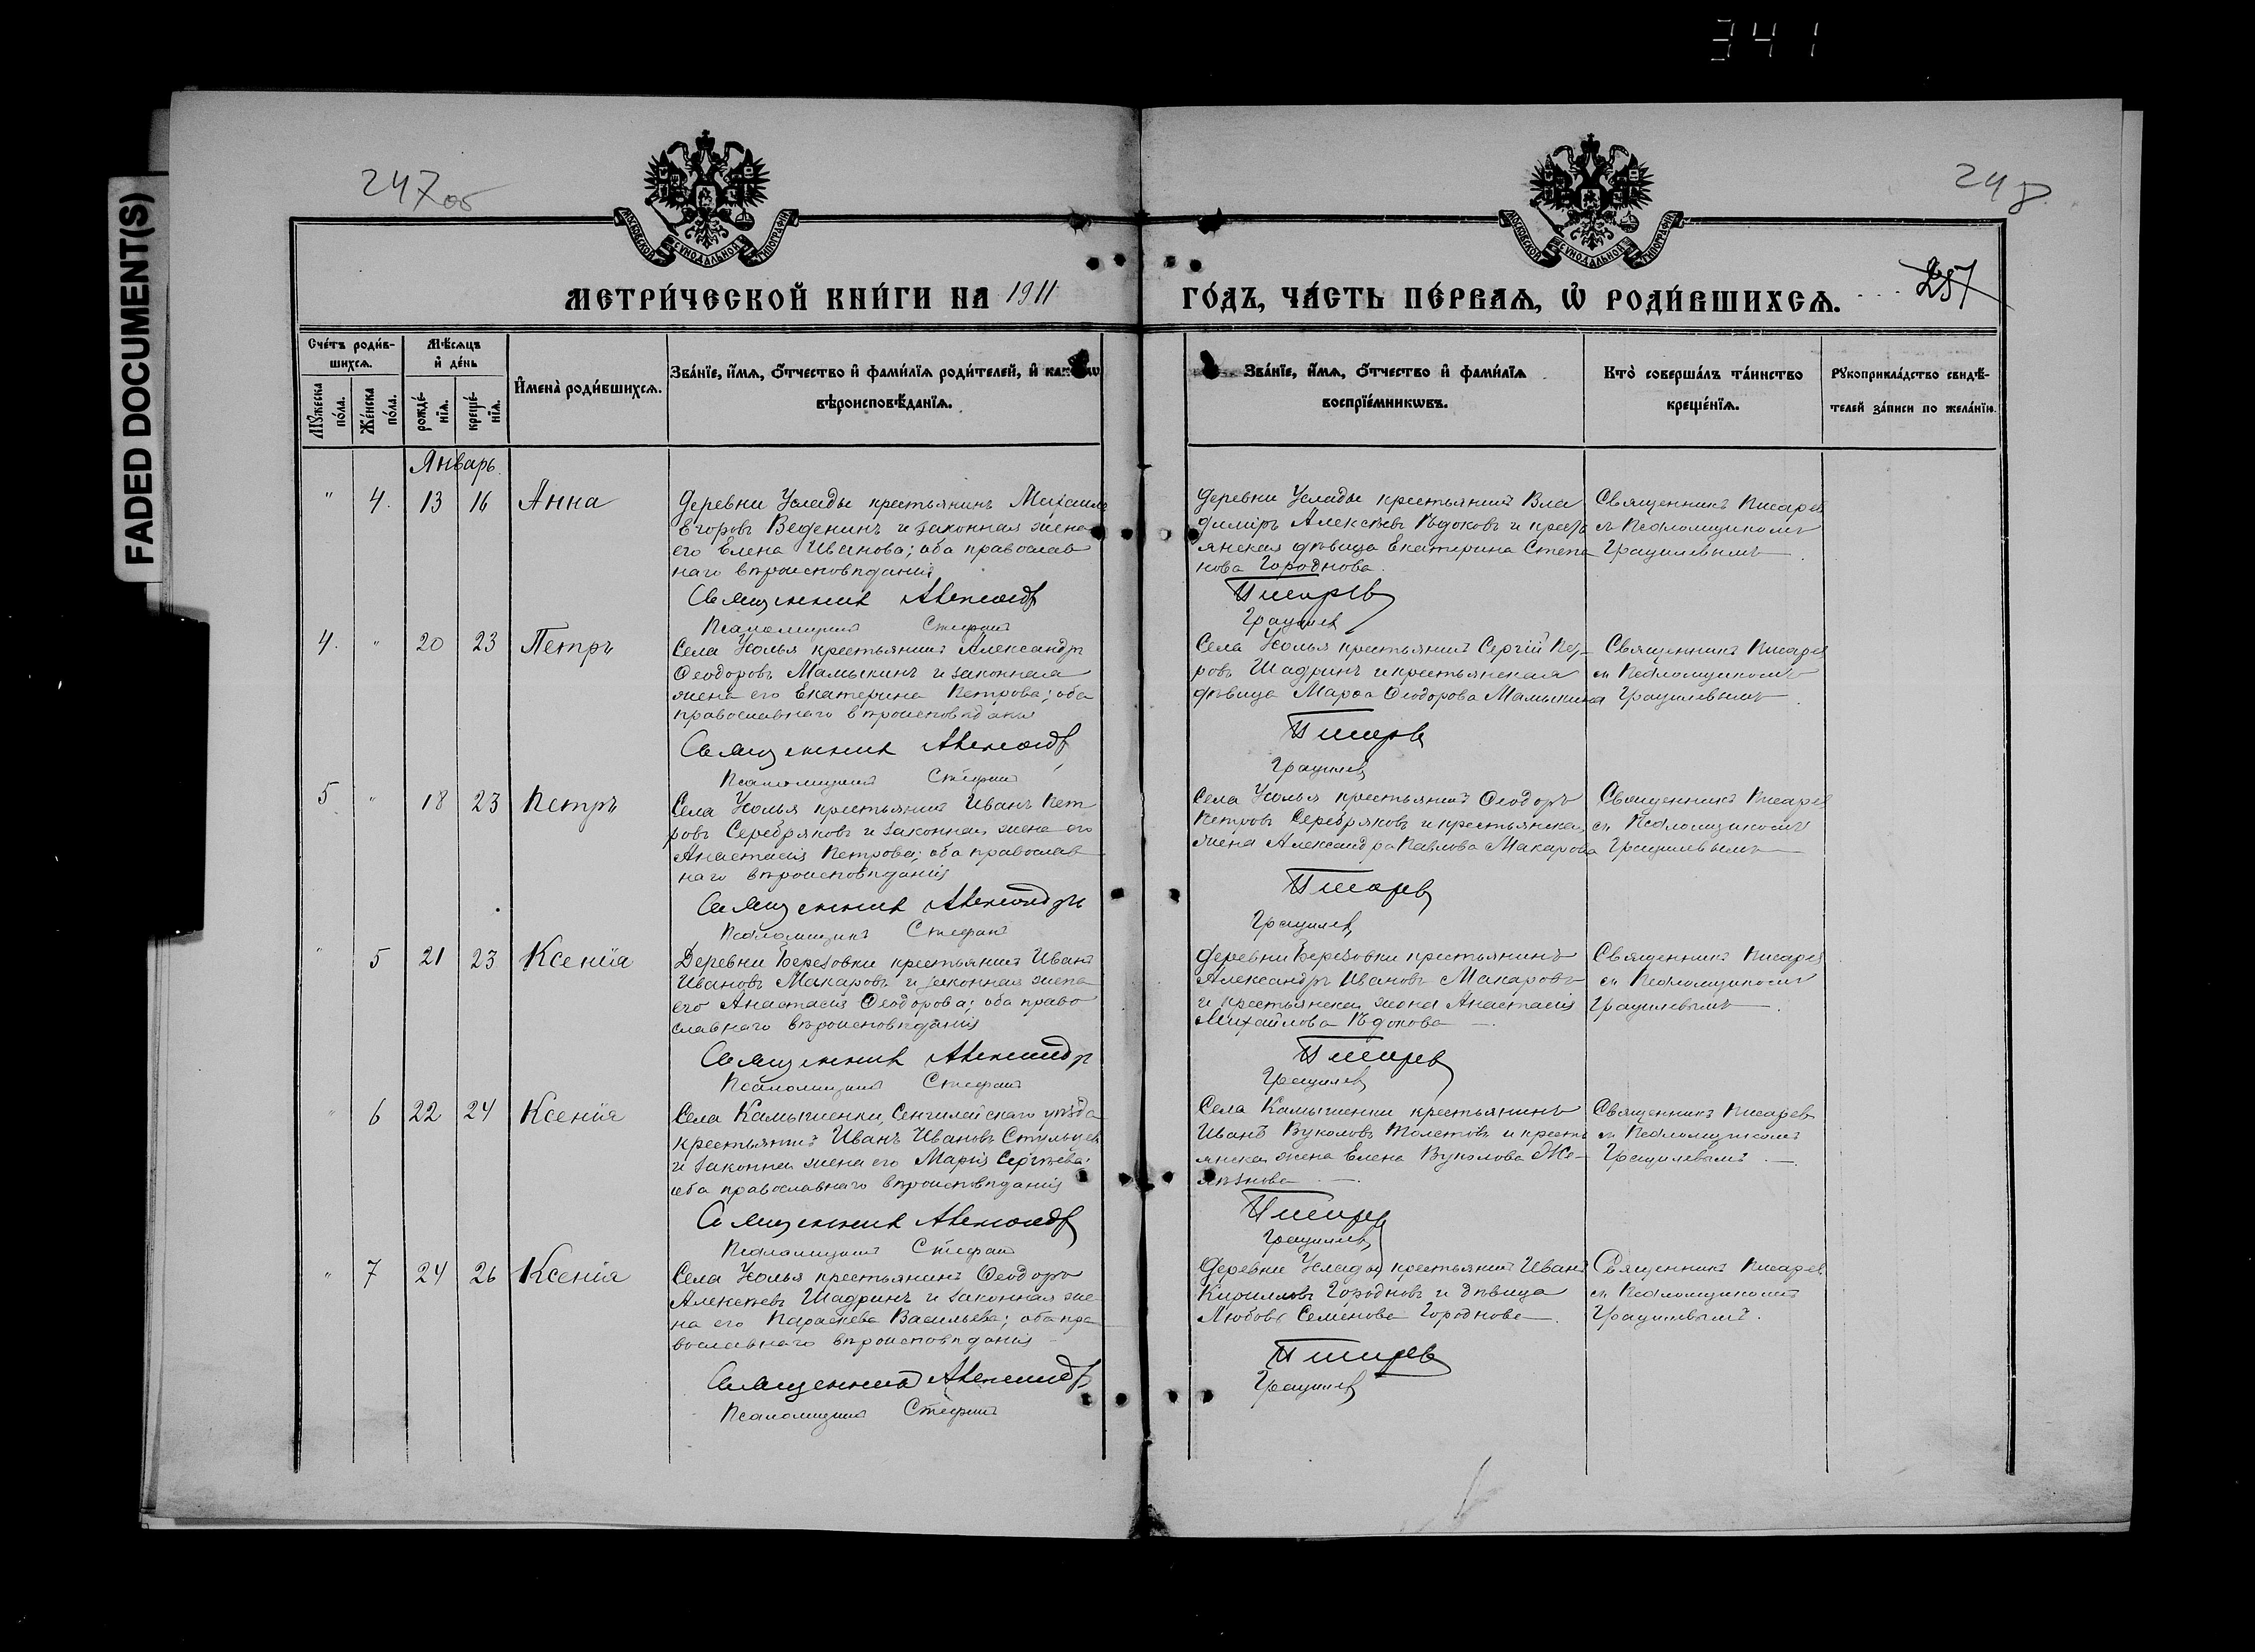 341
FADED DOCUMENT(S)
247 об
248
МОСКОВСКОЙ СѴНОДАЛЬНОЙ ТИПОГРАФІИ
МОСКОВСКОЙ СѴНОДАЛЬНОЙ ТИПОГРАФІИ
257
МЕТРИ́ЧЕСКОЙ КНИ́ГИ НА 1911
ГО́ДЪ, ЧА́СТЬ ПЕ́РВАѦ, Ѽ РОДИ́ВШИХСѦ.
Сче́тъ роди́в-
шихсѧ.
Мꙋ́жеска по́ла.
Же́нска по́ла.
Мѣ́сѧцъ
и҆ де́нь
рожде́-
нїѧ.
креще́-
нїѧ.
И҆мена̀ роди́вшихсѧ.
Зва́нїе, и҆́мѧ, ѻ҆́тчество и҆ фами́лїѧ роди́телей, и҆
вѣроисповѣ́данїѧ.
Зва́нїе, и҆́мѧ, ѻ҆́тчество и҆ фами́лїѧ
воспрїе́мникѡвъ.
Кто̀ соверша́лъ та́инство
креще́нїѧ.
Рꙋкоприкла́дство свидѣ́-
телей за́писи по жела́нїю.
Январь.
" 4. 13 16 Анна
Деревни Услады крестьянинъ Михаилъ
Егоровъ Веденинъ и законная жена
его Елена Иванова; оба православ
наго вѣроисповѣданія
Священникъ Александръ
Псаломщикъ Стефанъ
Деревни Услады крестьянинъ Вла
димиръ Алексѣевъ и кресть
янская дѣвица Екатерина Степа
нова Городнова.
Писаревъ
Грацилевъ
Священникъ Писаревъ
съ Псаломщикомъ
Грацилевымъ
4. " 20 23 Петръ
Села Усолья крестьянинъ Александръ
Ѳеодоровъ Мамыкинъ и законная
жена его Екатерина Петрова; оба
православнаго вѣроисповѣданія
Священникъ Александръ
Псаломщикъ Стефанъ
Села Усолья крестьянинъ Сергій Пет
ровъ Шадринъ и крестьянская
дѣвица Марѳа Ѳеодорова Мамыкина
Писаревъ
Грацилевъ
Священникъ Писаревъ
съ Псаломщикомъ
Грацилевымъ
5 " 18 23 Петръ
Села Усолья крестьянинъ Иванъ Пет
ровъ Серебряковъ и законная жена его
Анастасія Петрова; оба православ
наго вѣроисповѣданія
Священникъ Александръ
Псаломщикъ Стефанъ
Села Усолья крестьянинъ Ѳеодоръ
Петровъ Серебряковъ и крестьянская
жена Александра Павлова Макарова
Писаревъ
Грацилевъ
Священникъ Писаревъ
съ Псаломщикомъ
Грацилевымъ
" 5 21 23 Ксенія
Деревни Березовки крестьянинъ Иванъ
Ивановъ Макаровъ и законная жена
его Анастасія Ѳеодорова; оба право
славнаго вѣроисповѣданія
Священникъ Александръ
Псаломщикъ Стефанъ
Деревни Березовки крестьянинъ
Александръ Ивановъ Макаровъ
и крестьянская жена Анастасія
Михайлова
Писаревъ
Грацилевъ
Священникъ Писаревъ
съ Псаломщикомъ
Грацилевымъ
" 6 22 24 Ксенія
Села Камышенки, Сенгилейскаго уѣзда
крестьянинъ Иванъ Ивановъ
и законная жена его Марія Сергѣева;
оба православнаго вѣроисповѣданія
Священникъ Александръ
Псаломщикъ Стефанъ
Села Камышенки крестьянинъ
Иванъ Вуколовъ Толстовъ и кресть
янская жена Елена Вуколова Же-
лѣзнова
Писаревъ
Грацилевъ
Священникъ Писаревъ
съ Псаломщикомъ
Грацилевымъ
" 7 24 26 Ксенія
Села Усолья крестьянинъ Ѳеодоръ
Алексѣевъ Шадринъ и законная же
на его Параскева Васильева; оба пра
вославнаго вѣроисповѣданія
Священникъ Александръ
Псаломщикъ Стефанъ
Деревни Услады крестьянинъ Иванъ
Кирилловъ Городновъ и дѣвица
Любовь Семенова Городнова.
Писаревъ
Грацилевъ
Священникъ Писаревъ
съ Псаломщикомъ
Грацилевымъ.